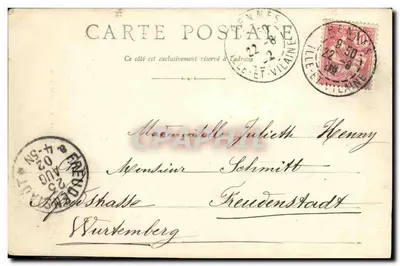 CARTE POSTALE
Ce côté est exclusivement réservé à l'adresse
RENNES
22 - 8
ILLE-ET-VILAINE
RENNES
8 30
22 - 8
ILLE-ET-VILAINE
Mademoiselle Juliette Henny
Monsieur Schmitt
Freudenstadt
Wurtemberg
FREUDENSTADT
25
AUG
02
8.4-5N